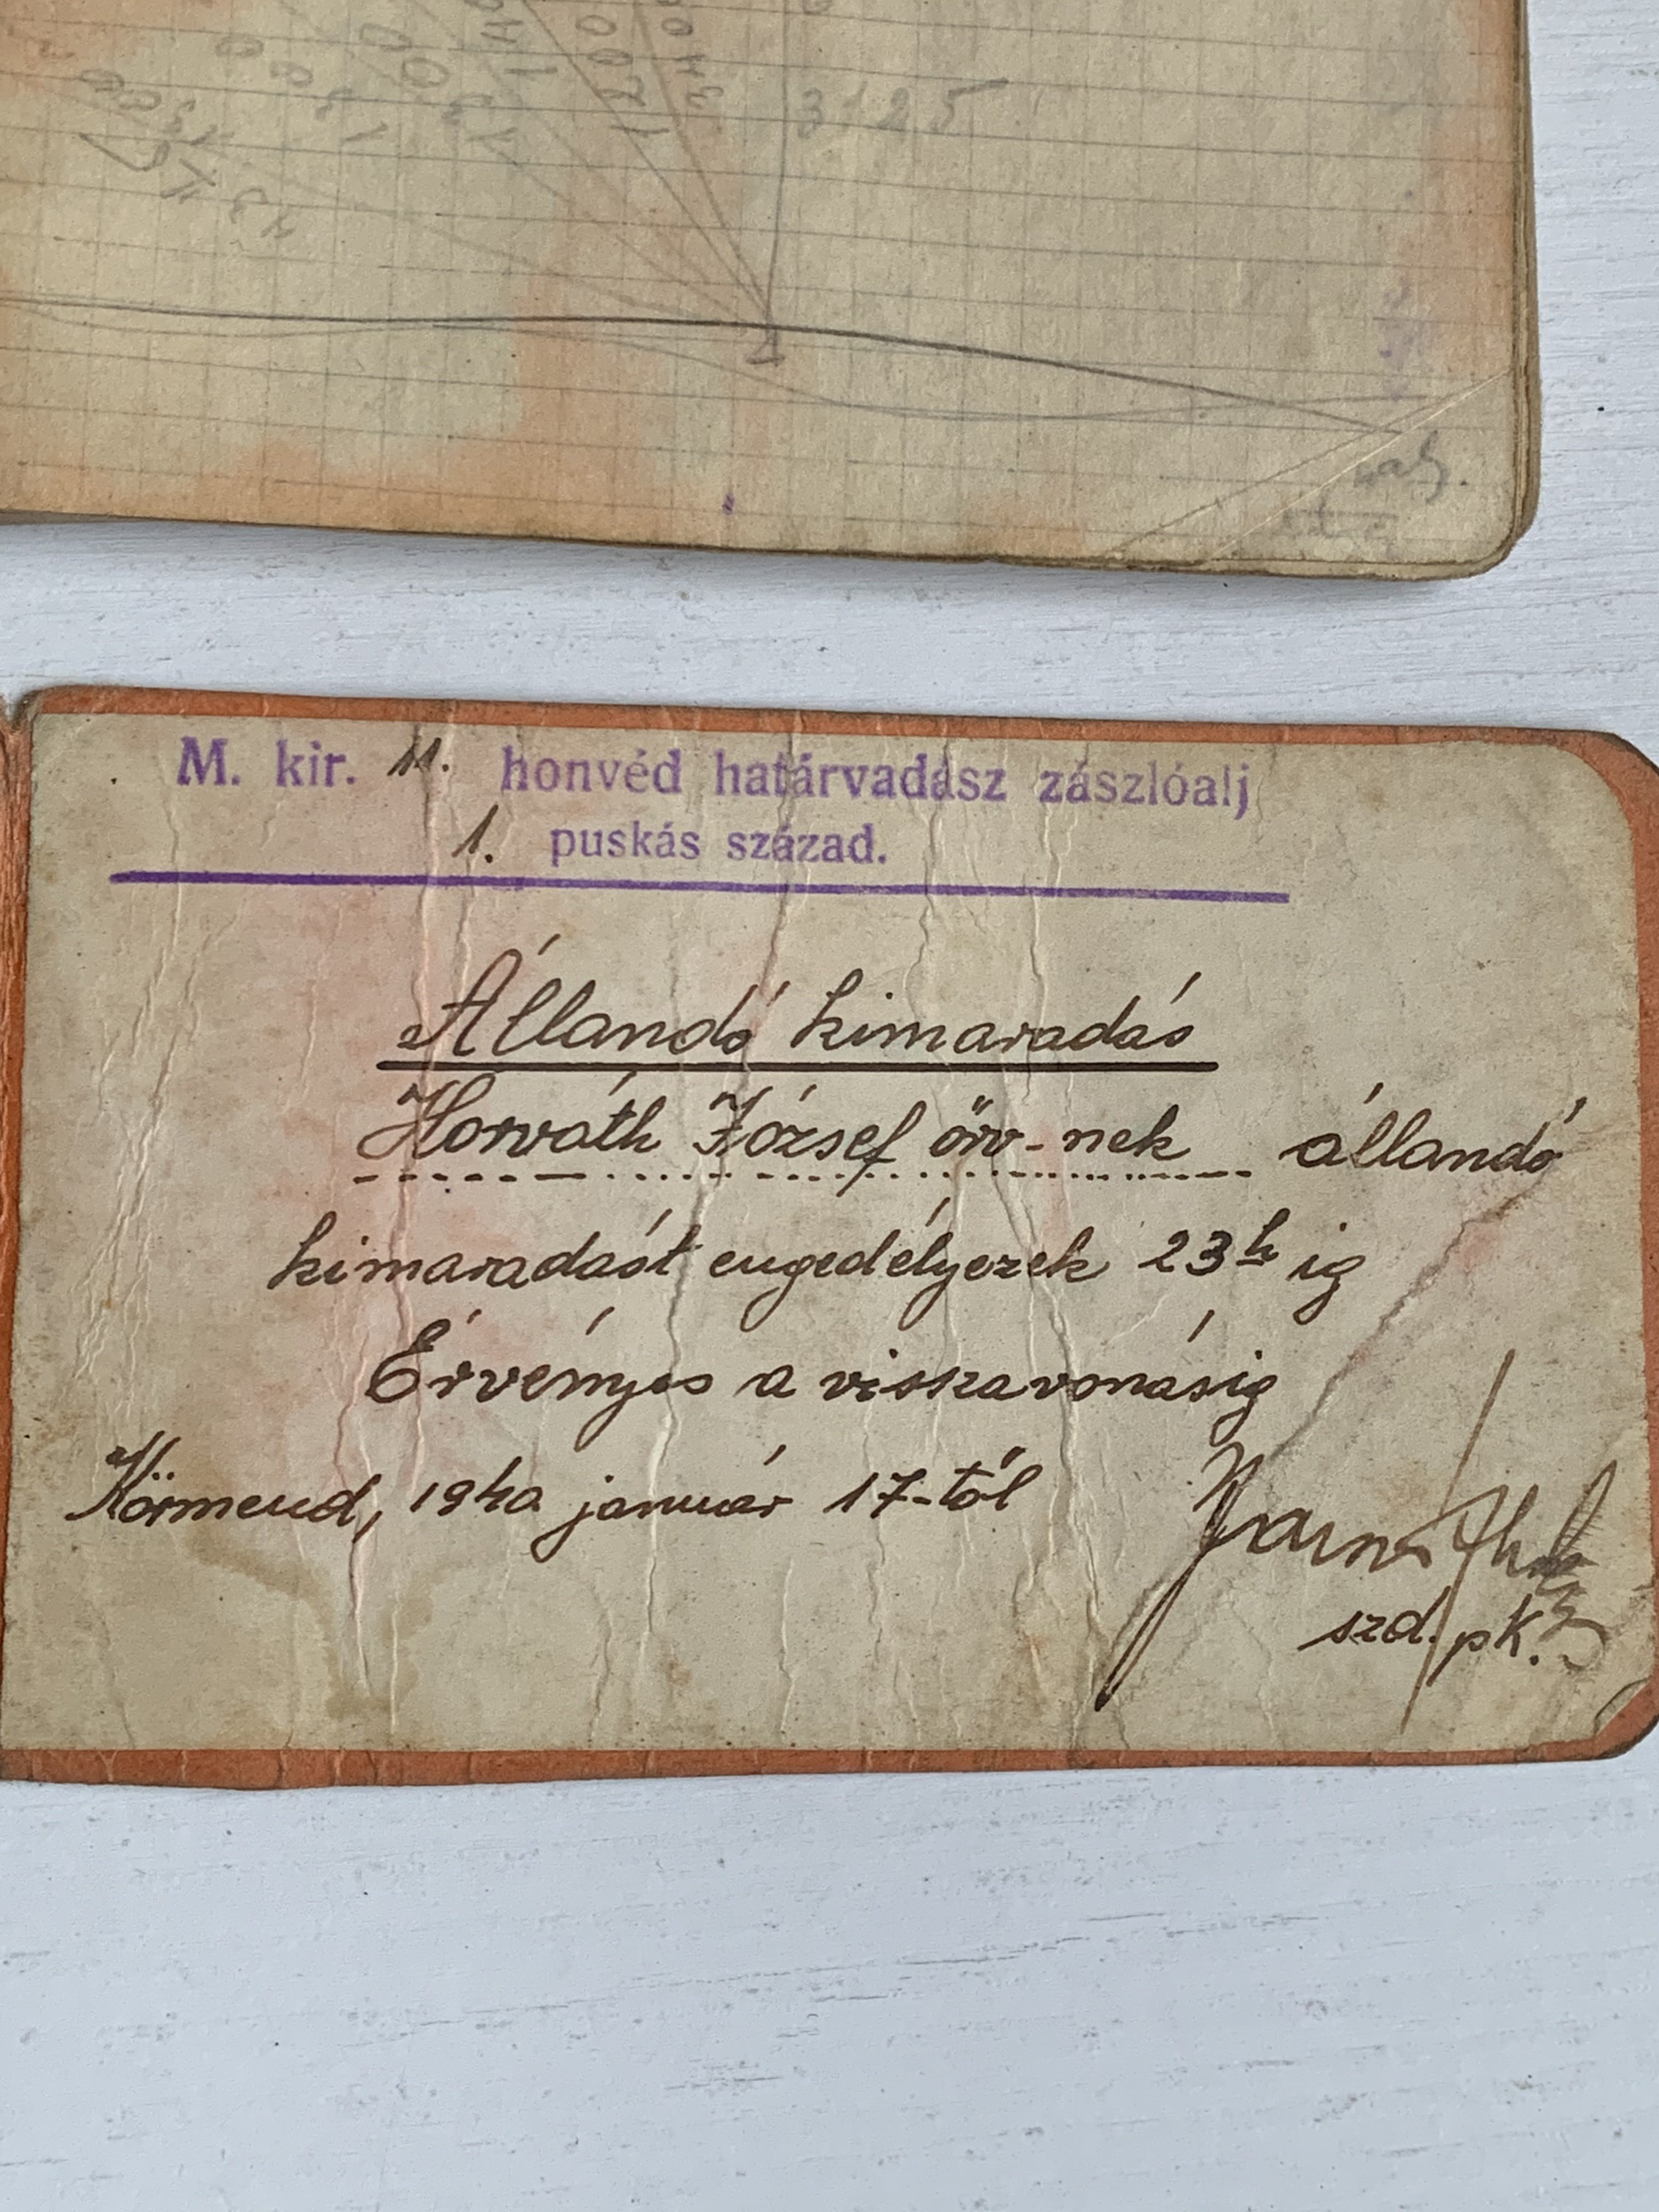 3400
1200
3125
M. kir. 11. honvéd határvadász zászlóalj
1. puskás század.
Állandó kimaradás
Horváth József őrv-nek állandó
kimaradást engedélyezek 23h ig
Érvényes a visszavonásig
Körmend, 1940 január 17-től
szd. pk.